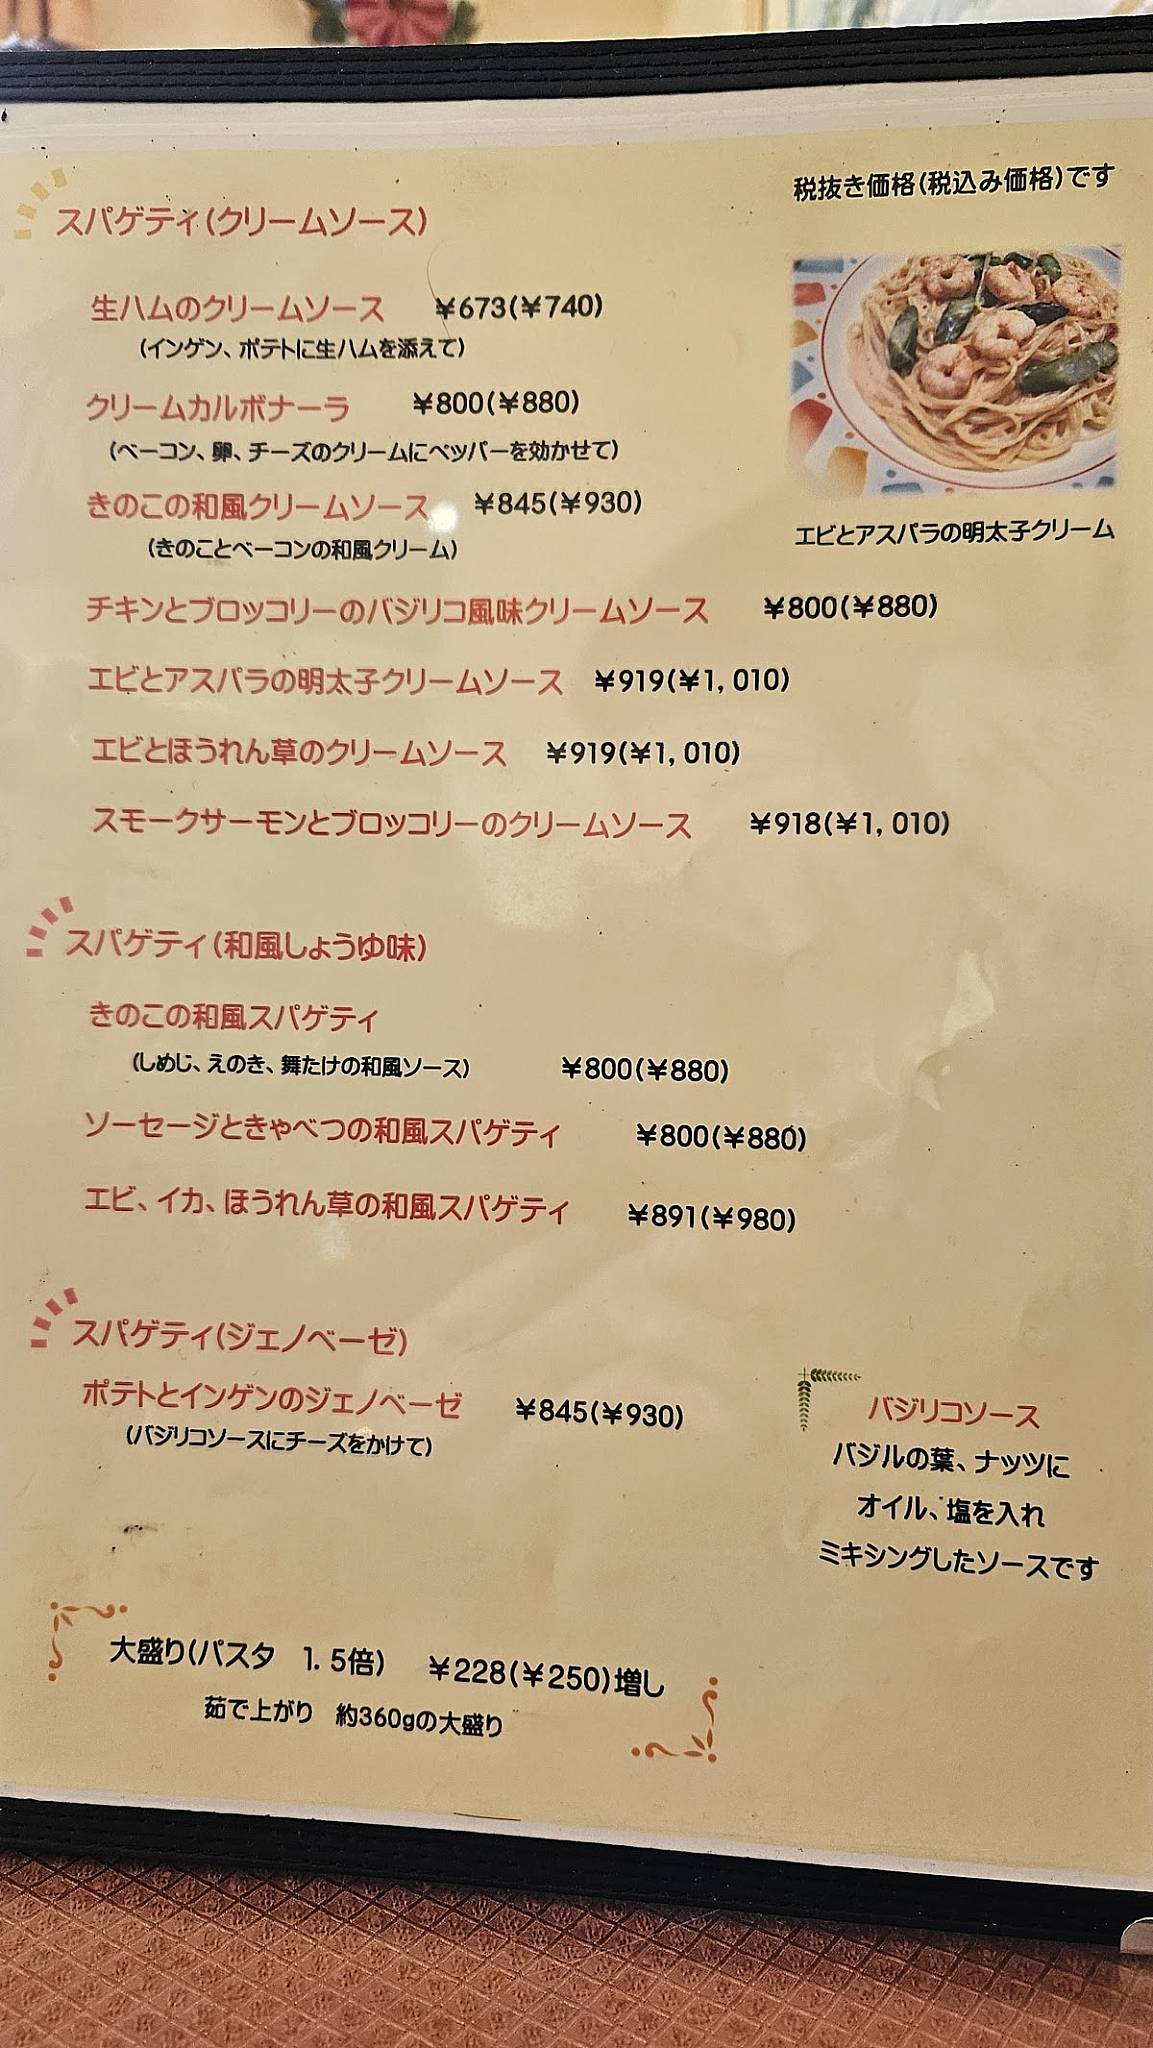 税抜き価格(税込み価格)です
スパゲティ(クリームソース)
生ハムのクリームソース ¥673(¥740)
(インゲン、ポテトに生ハムを添えて)
クリームカルボナーラ ¥800(¥880)
(ベーコン、卵、チーズのクリームにペッパーを効かせて)
きのこの和風クリームソース ¥845(¥930)
(きのことベーコンの和風クリーム)
エビとアスパラの明太子クリーム
チキンとブロッコリーのバジリコ風味クリームソース ¥800(¥880)
エビとアスパラの明太子クリームソース ¥919(¥1, 010)
エビとほうれん草のクリームソース ¥919(¥1, 010)
スモークサーモンとブロッコリーのクリームソース ¥918(¥1, 010)
スパゲティ(和風しょうゆ味)
きのこの和風スパゲティ
(しめじ、えのき、舞たけの和風ソース) ¥800(¥880)
ソーセージときゃべつの和風スパゲティ ¥800(¥880)
エビ、イカ、ほうれん草の和風スパゲティ ¥891(¥980)
スパゲティ(ジェノベーゼ)
ポテトとインゲンのジェノベーゼ ¥845(¥930)
(バジリコソースにチーズをかけて)
バジリコソース
バジルの葉、ナッツに
オイル、塩を入れ
ミキシングしたソースです
大盛り(パスタ 1. 5倍) ¥228(¥250)増し
茹で上がり 約360gの大盛り